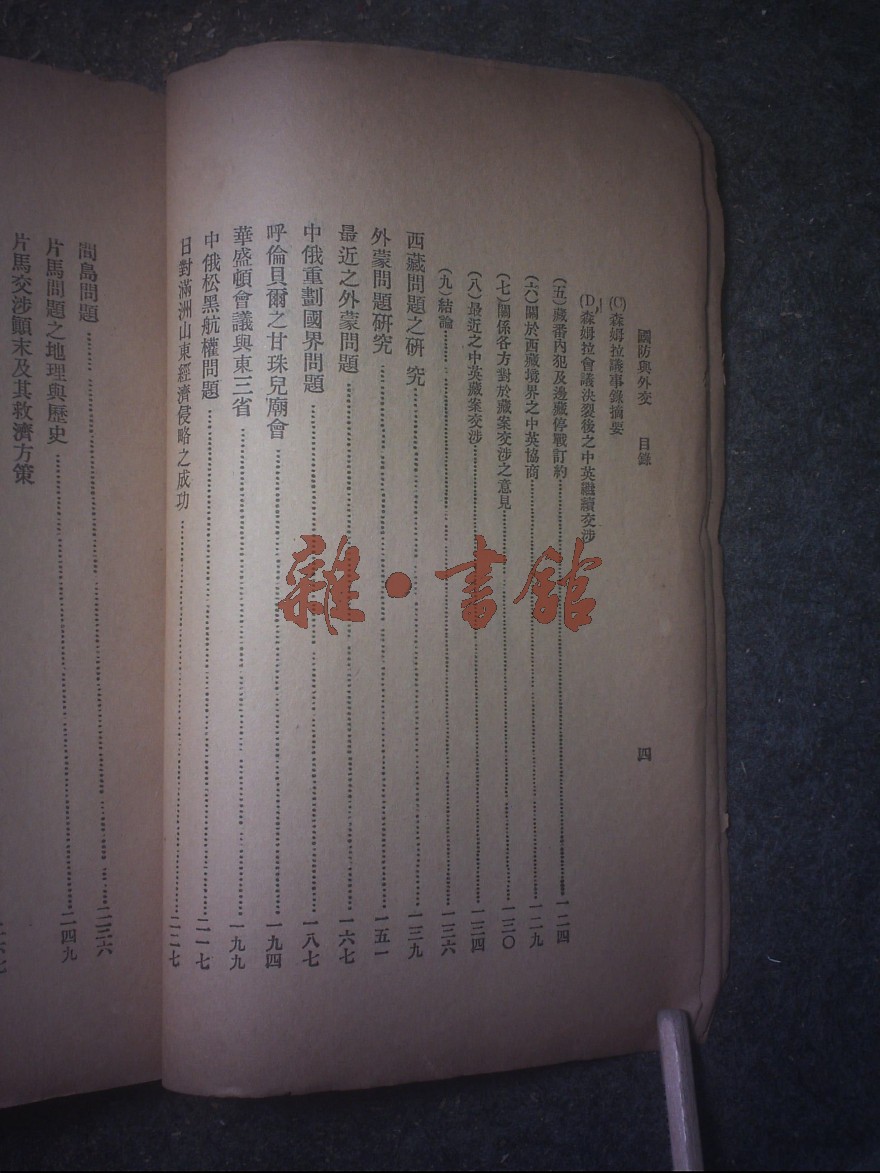 國防與外交　目錄　四
(C)森姆拉議事錄摘要
(D)森姆拉會議決裂後之中英繼續交涉
(五)藏番內犯及邊藏停戰訂約……一二四
(六)關於西藏境界之中英協商……一二九
(七)關係各方對於藏案交涉之意見……一三〇
(八)最近之中英藏案交涉……一三四
(九)結論……一三六
西藏問題之研究……一三九
外蒙問題研究……一五一
最近之外蒙問題……一六七
中俄重劃國界問題……一八七
呼倫貝爾之甘珠兒廟會……一九四
華盛頓會議與東三省……一九九
中俄松黑航權問題……二一七
日對滿洲山東經濟侵略之成功……二二七
間島問題……二三六
片馬問題之地理與歷史……二四九
片馬交涉顛末及其救濟方策
雜·書館